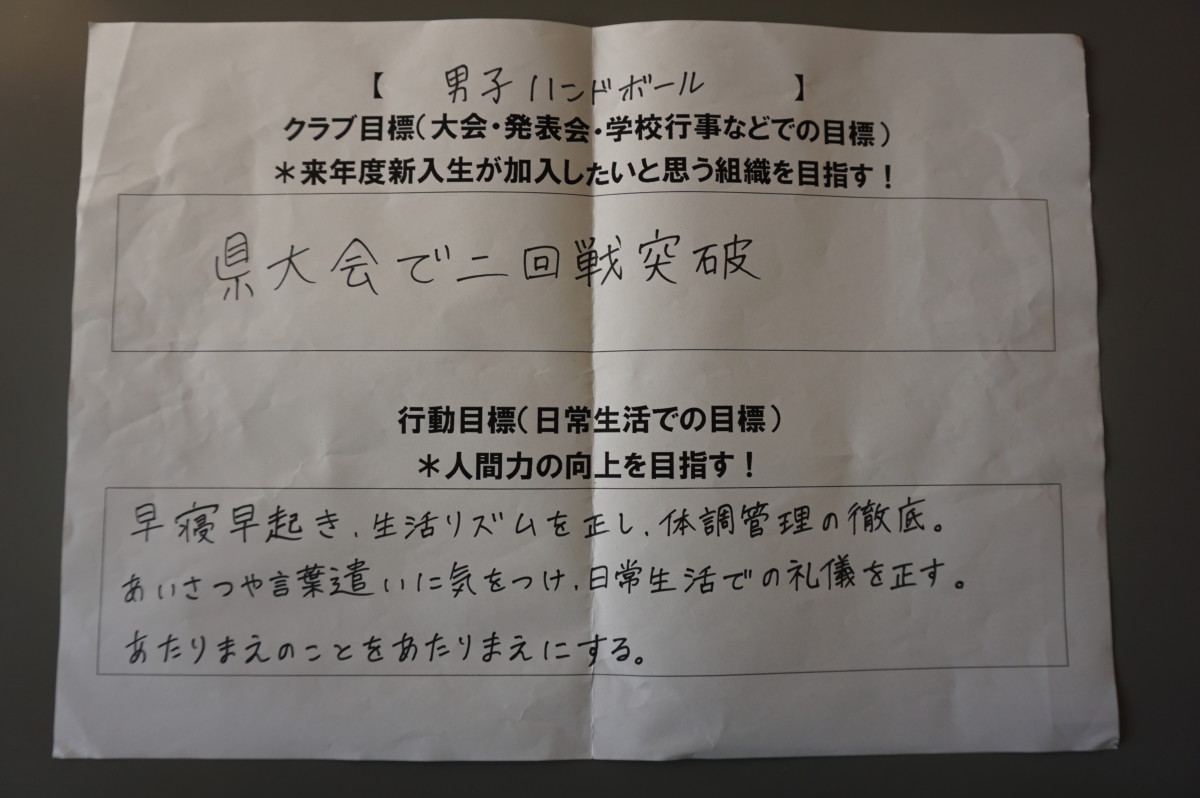 【 男子ハンドボール 】
クラブ目標(大会・発表会・学校行事などでの目標)
＊来年度新入生が加入したいと思う組織を目指す！
県大会で二回戦突破
行動目標(日常生活での目標)
＊人間力の向上を目指す！
早寝早起き、生活リズムを正し、体調管理の徹底。
あいさつや言葉遣いに気をつけ、日常生活での礼儀を正す。
あたりまえのことをあたりまえにする。